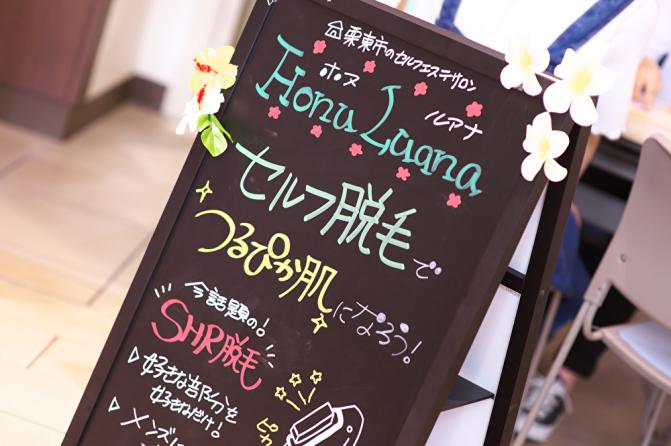 栗東市のセルフエステサロン
ホヌ ルアナ
Honu Luana
セルフ脱毛で
つるぴか肌になろう!
今話題の!
SHR脱毛
▷好きな部分を
好きなだけ!
▷メンズに
ピカ